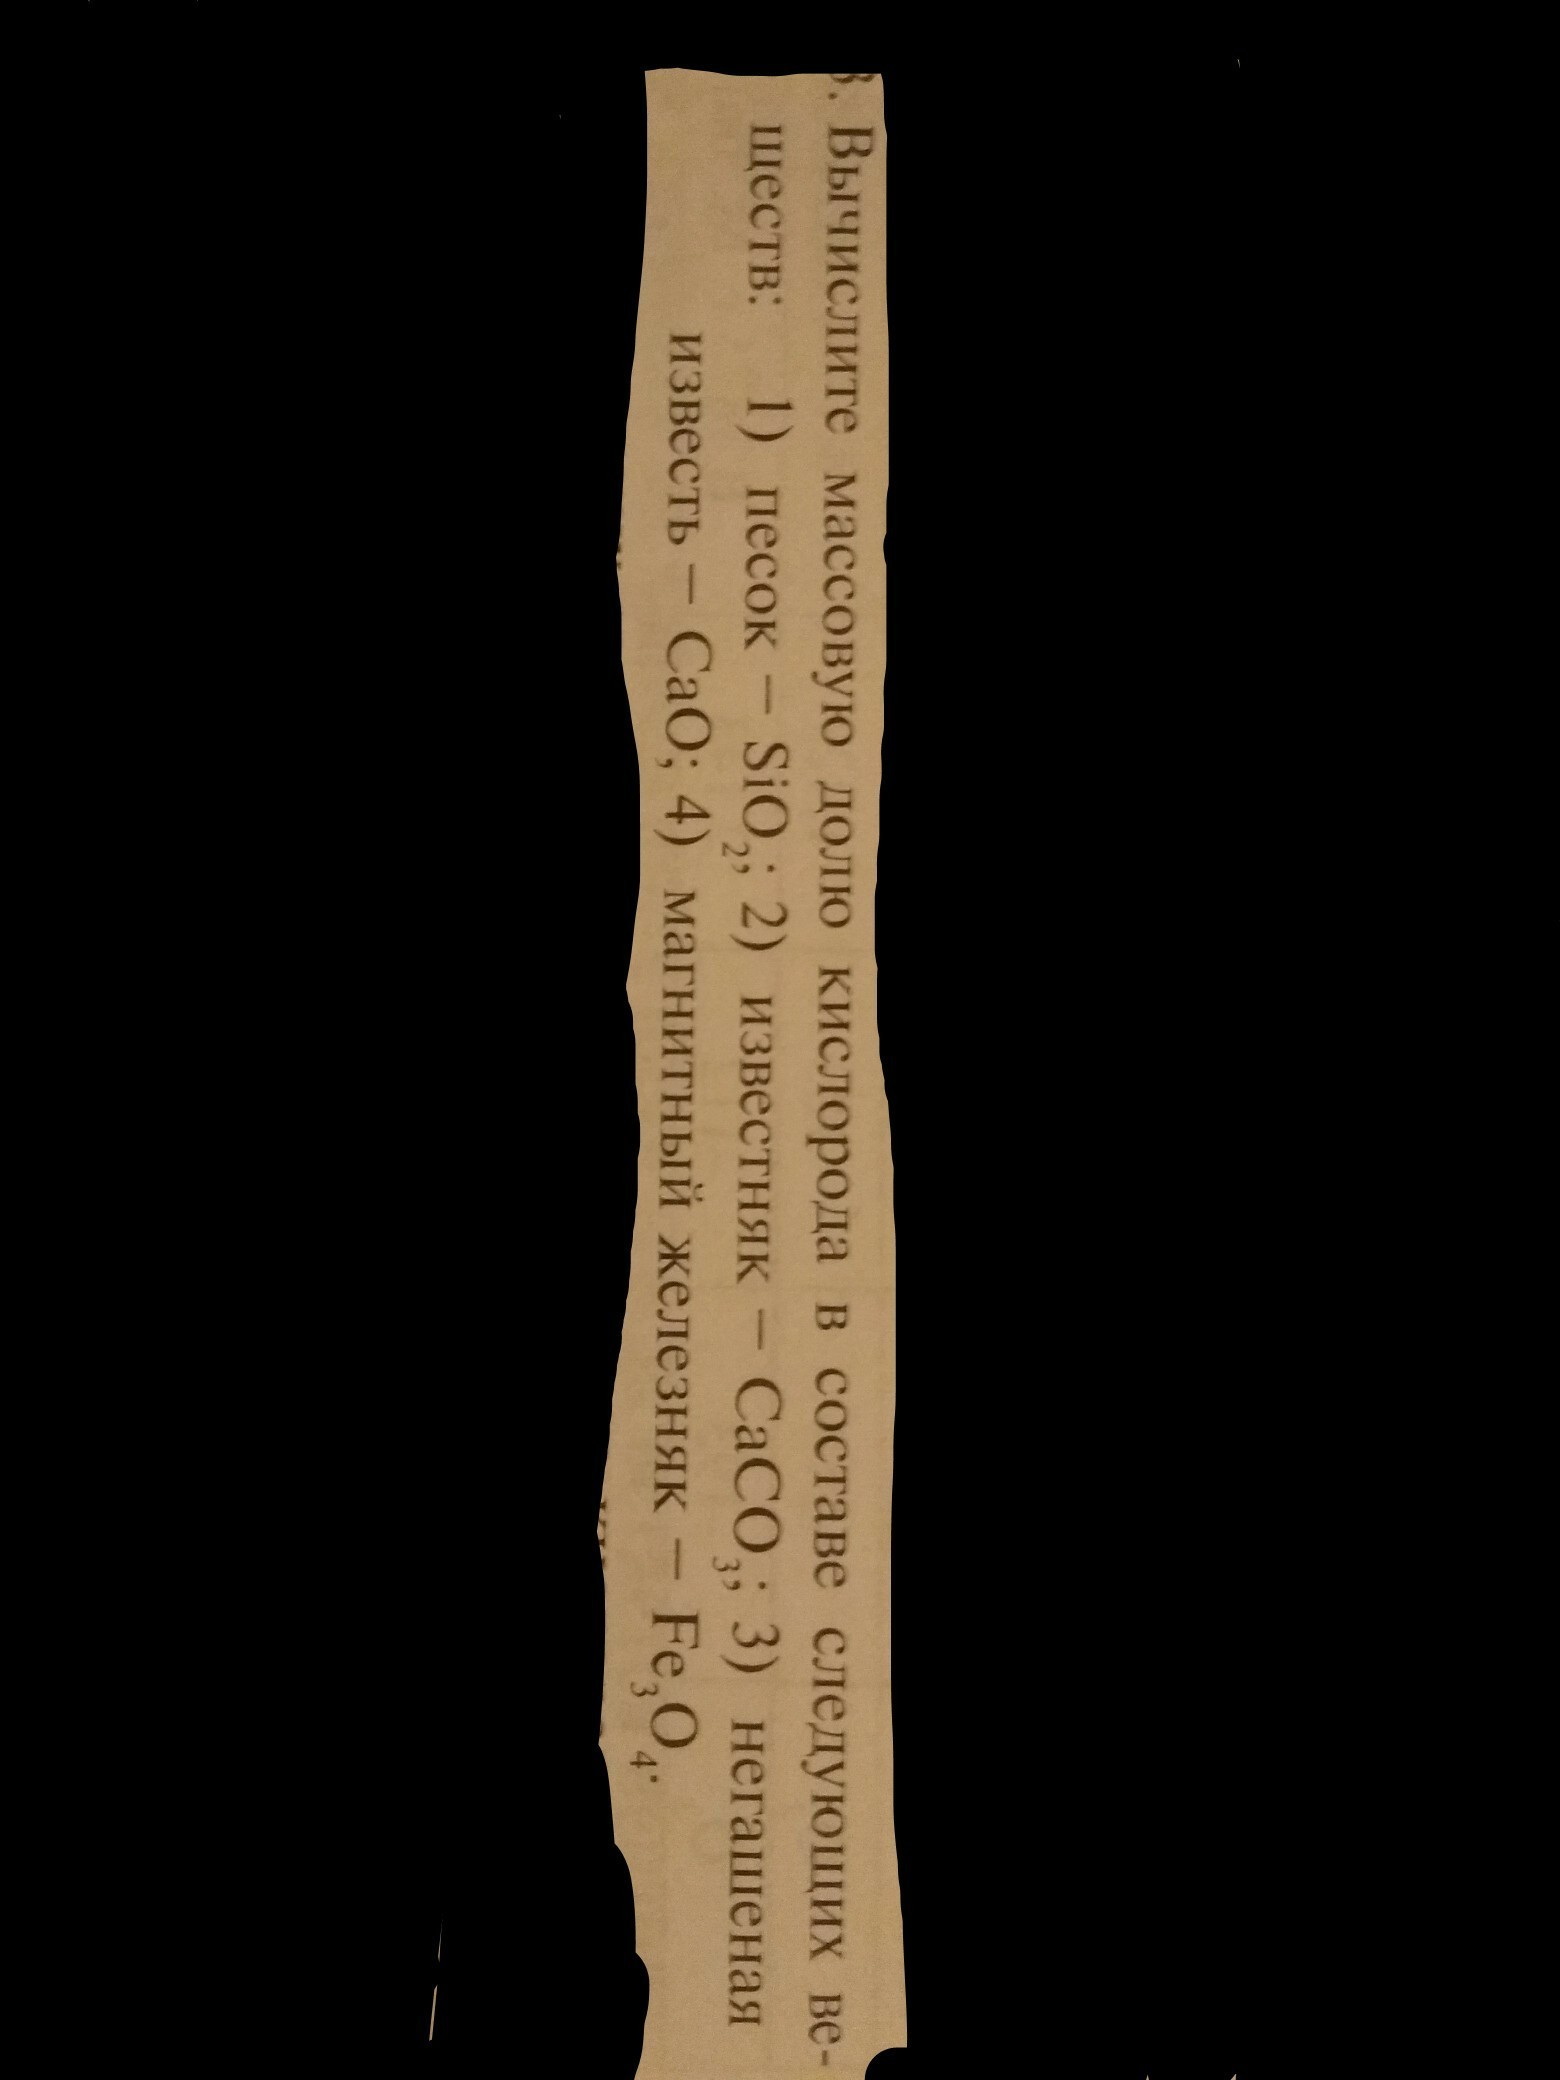 3. Вычислите массовую долю кислорода в составе следующих ве-
ществ: 1) песок – SiO₂; 2) известняк – CaCO₃; 3) негашеная
известь – CaO; 4) магнитный железняк – Fe₃O₄.